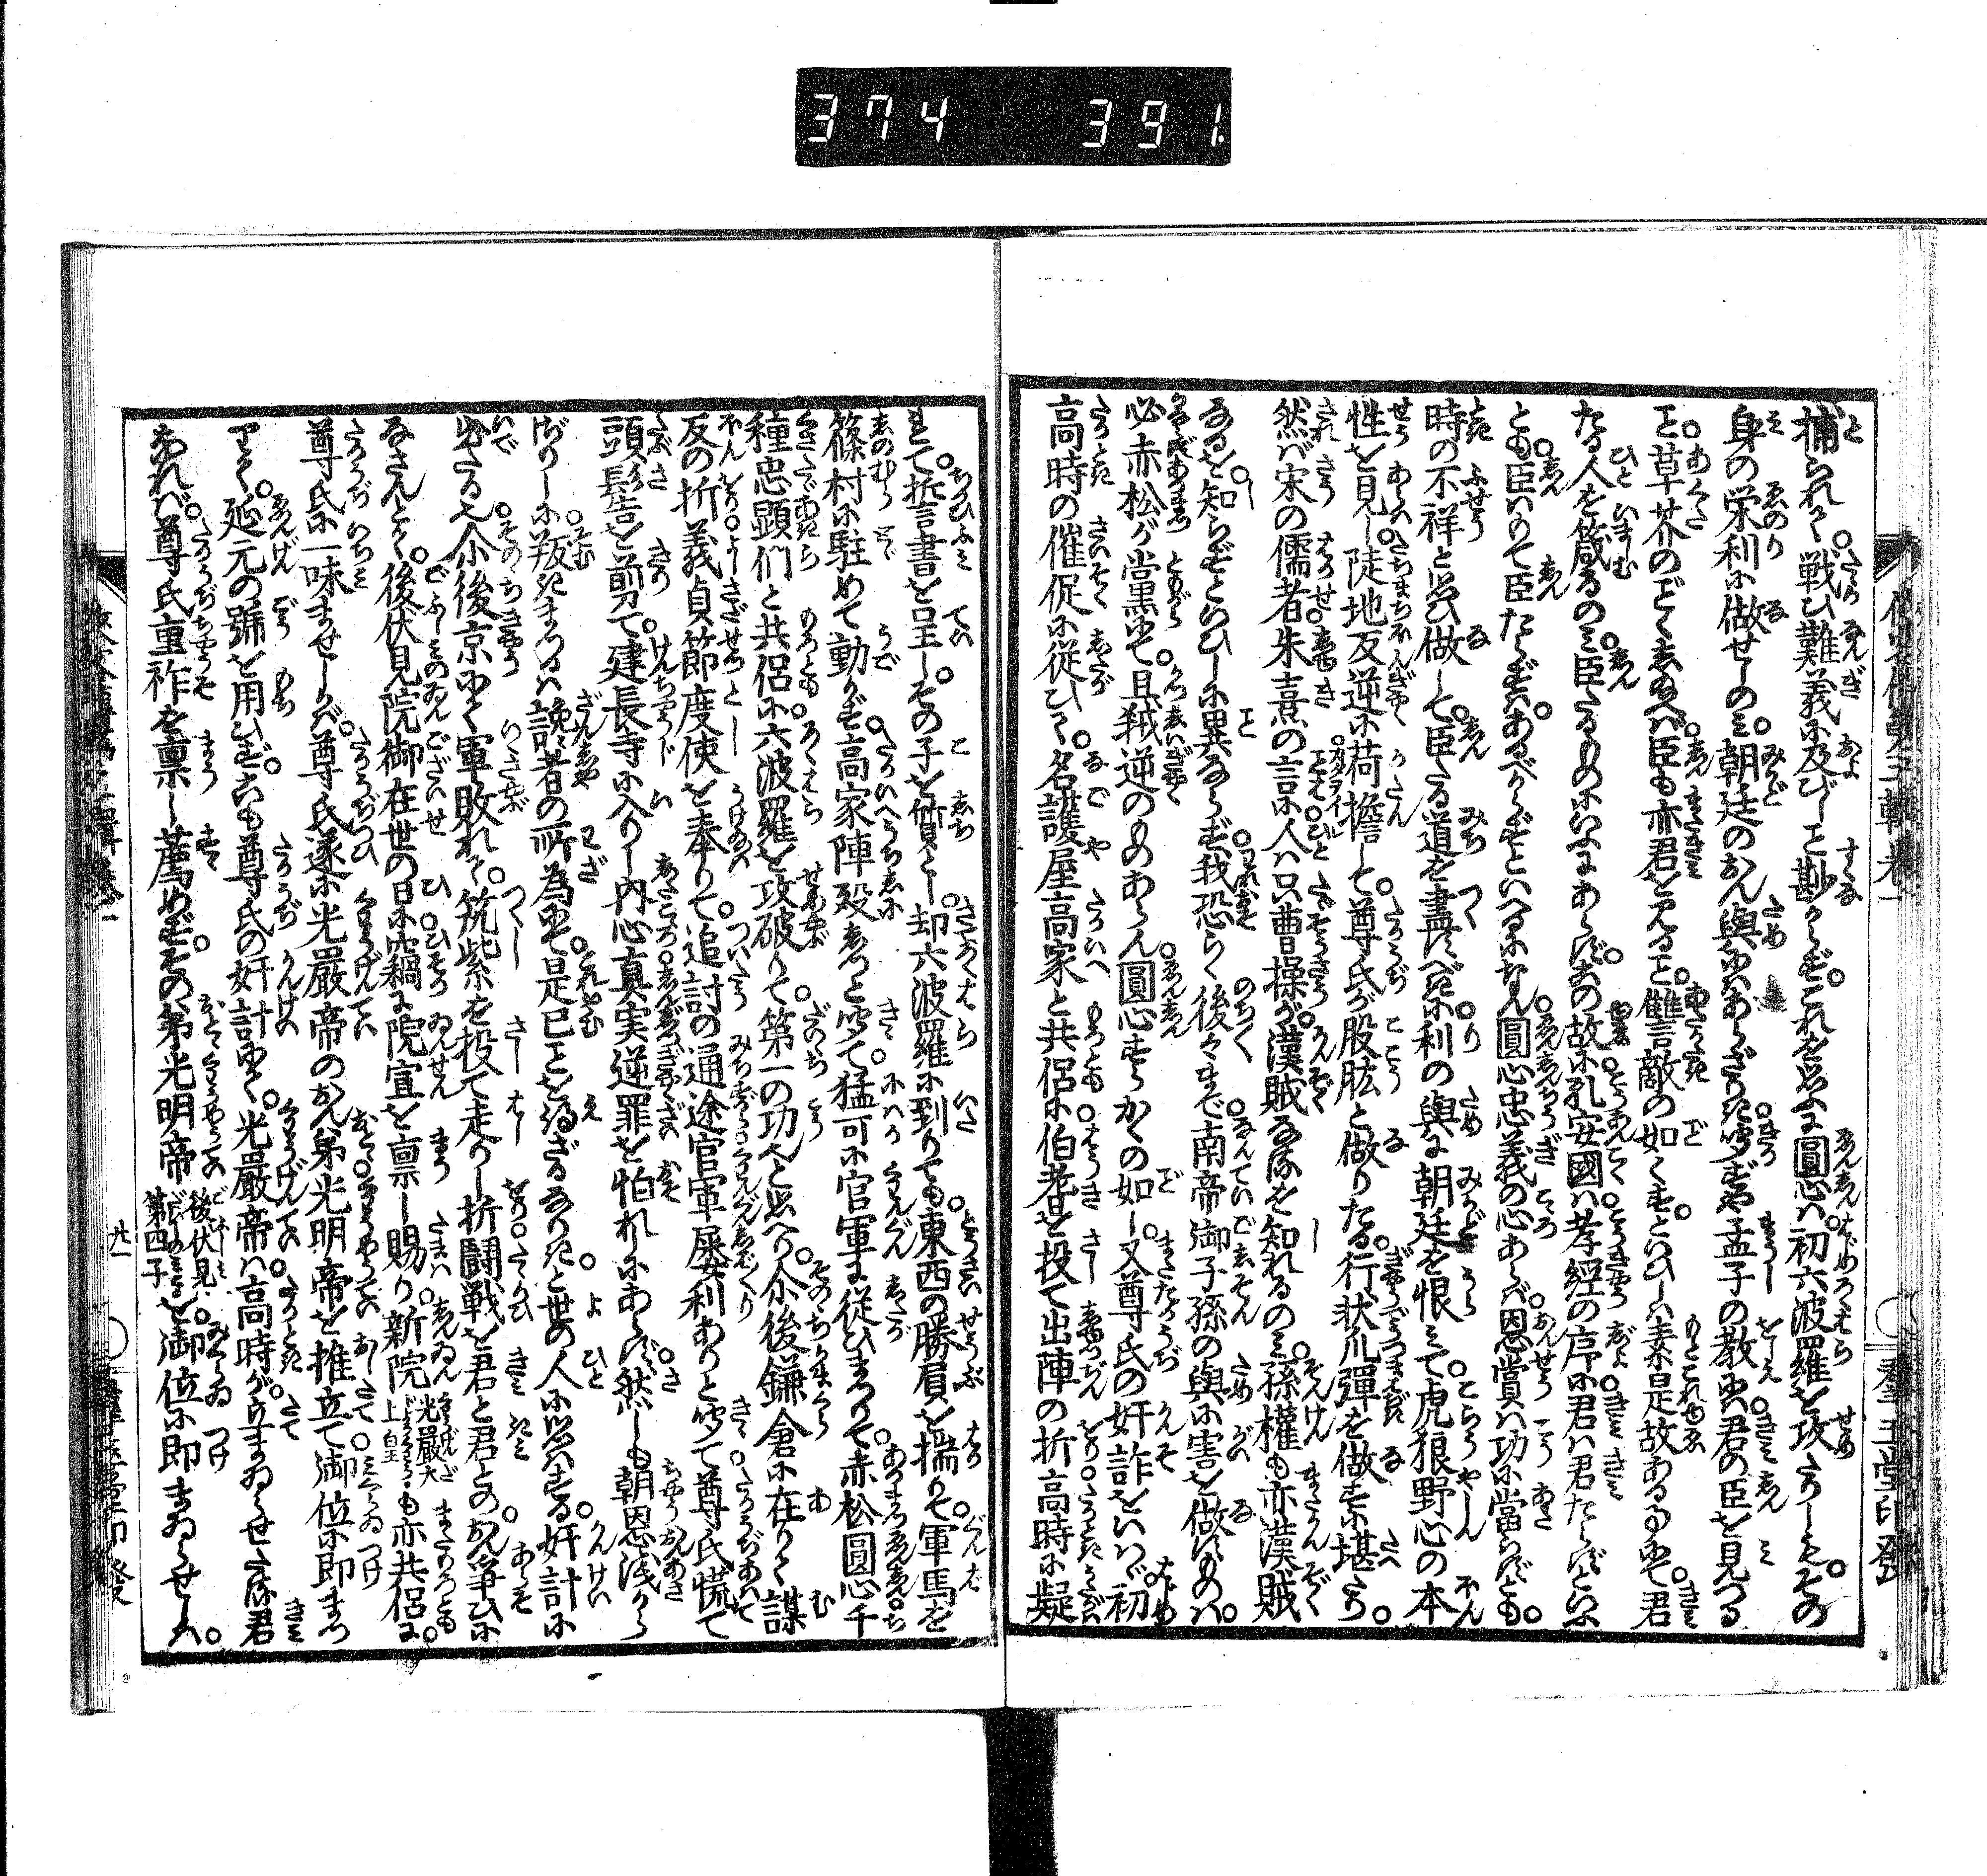 374 391
捕られて。戦ひ難義に及びしこと尠からず。これを思ふに圓心は。初六波羅を攻たりしも。その
身の栄利に做せしのミ。朝廷のおん與にはあらざりき。聞ずや孟子の教に。君の臣を見つる
こと。草芥のごとくするときは。臣も亦君を見ること。讐敵の如くす。といひしは素是故あるにて。君
たる人を箴るのミ。臣たるものにいふにあらず。この故に孔安國は。孝經の序に。君は君たらずといふ
とも。臣以て臣たらずはあるべからずといへるになん。圓心忠義の心あらば。恩賞は功に當らずとも。
時の不祥と思ひ做して。臣たる道を盡すべきに。利の與に朝廷を恨ミて。虎狼野心の本
性を見し。陡地反逆に荷擔して。尊氏が股肱と做りたる。行状爪彈を做すに堪たり。
然ば宋の儒者。朱熹の言に。人は只曹操が。漢賊なるを知れるのミ。孫權も亦漢賊
なるを。知らずといひしに異ならず。我恐らく後々まで。南帝御子孫の與に害を做すものは。
必赤松が黨にて。且弑逆のものあらん。圓心すらかくの如し。又尊氏の奸詐をいはゞ。初
高時の催促に從ひて。名護屋高家と共侶に。伯耆を投て出陣の折。高時に疑
れて。誓書を呈し。その子を質とし。却六波羅に到りても。東西の勝負を揣りて。軍馬を
篠村に駐めて動かず。高家陣歿しつと聞て。猛可に官軍に從ひまつりて。赤松圓心千
種忠顕們と共侶に。六波羅を攻破りて。第一の功臣と出つ。尒後鎌倉に在りて謀
反の折。義貞節度使を奉りて。追討の通途。官軍屡利ありと聞て。尊氏慌て
頭髻を剪て。建長寺に入りし。内心真実逆罪を怕れしにあらず。然しも朝恩浅から
ざりしに。叛きまつるは讒者の所為にて。是已ことを得ざるなりきと。世の人に思はする。奸計に
出たる也。尒後京にて軍敗れて。筑紫を投て走りし折。闘戦を君と君とのおん爭ひに
なさんとて。後伏見院御在世の日に。竊に院宣を稟し賜り。新院光嚴太上皇も亦共侶に。
尊氏に一味ませしかば。尊氏遂に光嚴帝のおん弟。光明帝を推立て。御位に即まつ
りて。延元の號を用ひず。是も尊氏の奸計にて。光嚴帝は。高時が立まゐらせたる君
なれば。尊氏重祚を稟し薦めず。その弟光明帝後伏見第四子を。御位に即まゐらせしは。
廿一